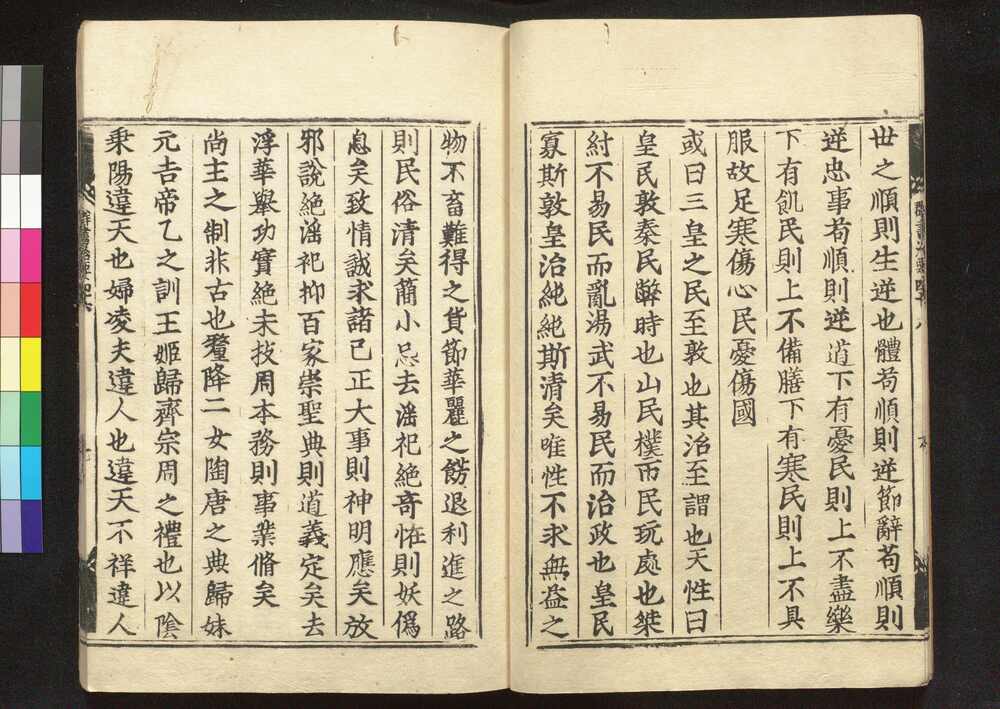 世之順則生逆也體苟順則逆節辭苟順則
逆忠事苟順則逆道下有憂民則上不盡樂
下有飢民則上不備膳下有寒民則上不具
服故足寒傷心民憂傷國
或曰三皇之民至敦也其治至謂也天性曰
皇民敦秦民弊時也山民樸市民玩處也桀
紂不易民而亂湯武不易民而治政也皇民
寡斯敦皇治純純斯清矣唯性不求無益之
物不畜難得之貨節華麗之餝退利進之路
則民俗清矣簡小忌去淫祀絶奇怪則妖僞
息矣致情誠求諸己正大事則神明應矣放
邪說絶淫祀抑百家崇聖典則道義定矣去
浮華舉功實絶末技周本務則事業脩矣
尚主之制非古也釐降二女陶唐之典歸妹
元吉帝乙之訓王姬歸齊宗周之禮也以陰
乗陽違天也婦凌夫違人也違天不祥違人
群書治要四十六